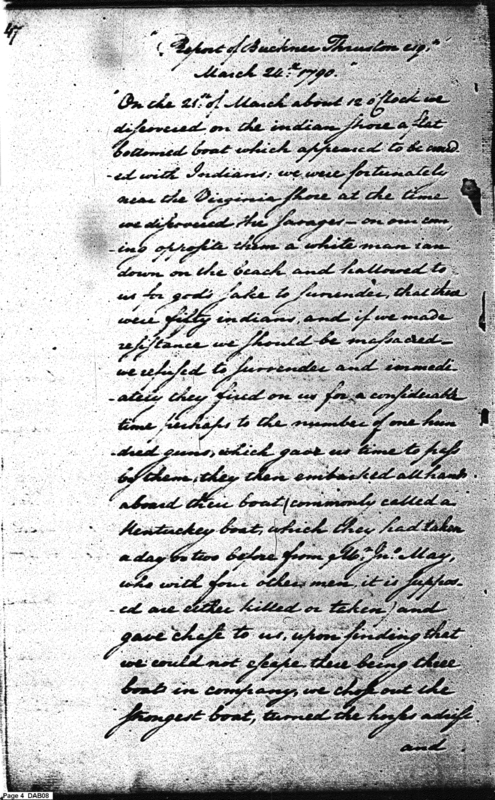 47
"Report of Buckner Thruston esqr."
March 24th. 1790."
"On the 21st. of March about 12 oClock we
discovered on the indian shore a flat
bottomed boat which appeared to be crowd
-ed with Indians: we were fortunately
near the Virginia shore at the time
we discovered the savages — on our com,
-ing opposite them a white man ran
down on the beach and hallowed to
us for god's sake to surrender, that there
were fifty indians, and if we made
resistance we should be massacred —
we refused to surrender and immedi
-ately they fired on us for a considerable
time perhaps to the number of one hun
-dred guns, which gave us time to pass
by them; they then embarked all hands
aboard their boat (commonly called a
Kentuckey boat, which they had taken
a day or two before from Mr. Jno. May,
who with four other men, it is suppos-
-ed are either killed or taken) and
gave chase to us, upon finding that
we could not escape there being three
boats in company, we chose out the
strongest boat, turned the horses adrift
and
Page 4 DAB08